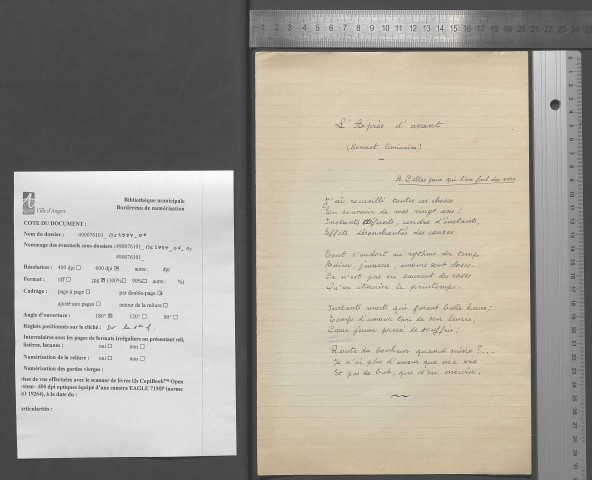 Bibliothèque municipale
Bordereau de numérisation
Ville d'Angers
COTE DU DOCUMENT :
Nom du dossier : 490076101_
Nommage des éventuels sous-dossiers :490076101_
490076101_
Résolution : 400 dpi 600 dpi autre: dpi
Format : tiff jpg (100% 90% autre: %)
Cadrage : page à page par double-page
ajusté aux pages autour de la reliure
Angle d'ouverture : 180° 120° 90°
Réglets positionnés sur le cliché :
Intercalaires sous les pages de formats irréguliers ou présentant œil,
lisières, lacunes : oui non
Numérisation de la reliure : oui non
Numérisation des gardes vierges :
ises de vue effectuées avec le scanner de livres i2s CopiBook™ Open
400 dpi optiques équipé d'une caméra EAGLE 71MP (norme
O 19264), à la date du :
articularités :
L'Après d'avant
(Sonnet liminaire)
A Celles pour qui l'on fait des vers
J'ai recueilli toutes ces choses
En souvenir de mes vingt ans :
Instants défunts, cendre d'instants,
Effets désenchantés des causes.
Tout s'endort au rythme du temps
Adieu, jeunesse, moins closes.
Ce n'est pas en sauvant des roses
Qu'on éternise le printemps.
Instants morts qui furent belle heure ;
Temps d'amour tari de son leurre ;
Cœur jeune pressé de souffrir ;
Route du bonheur quand suivie ?...
Je n'ai plus d'amour que ma vie
Et pas de but, que d'en mourir.